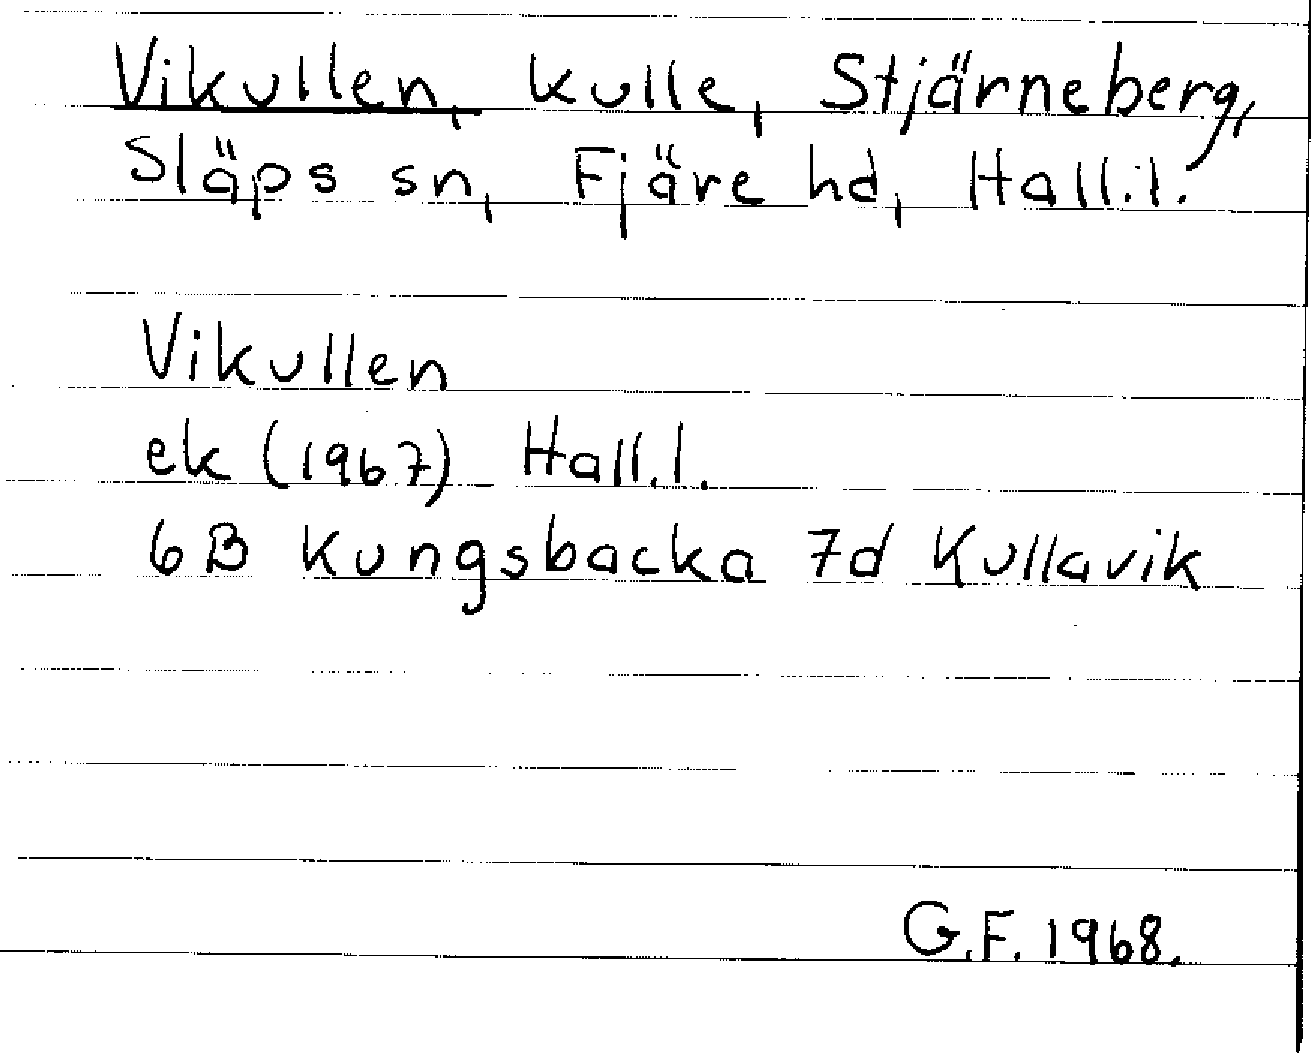 Vikullen, kulle, Stjärneberg,
Släps sn, Fjäre hd, Hall.l.
Vikullen
ek (1967) Hall.l.
6B Kungsbacka 7d Kullavik
G.F. 1968.